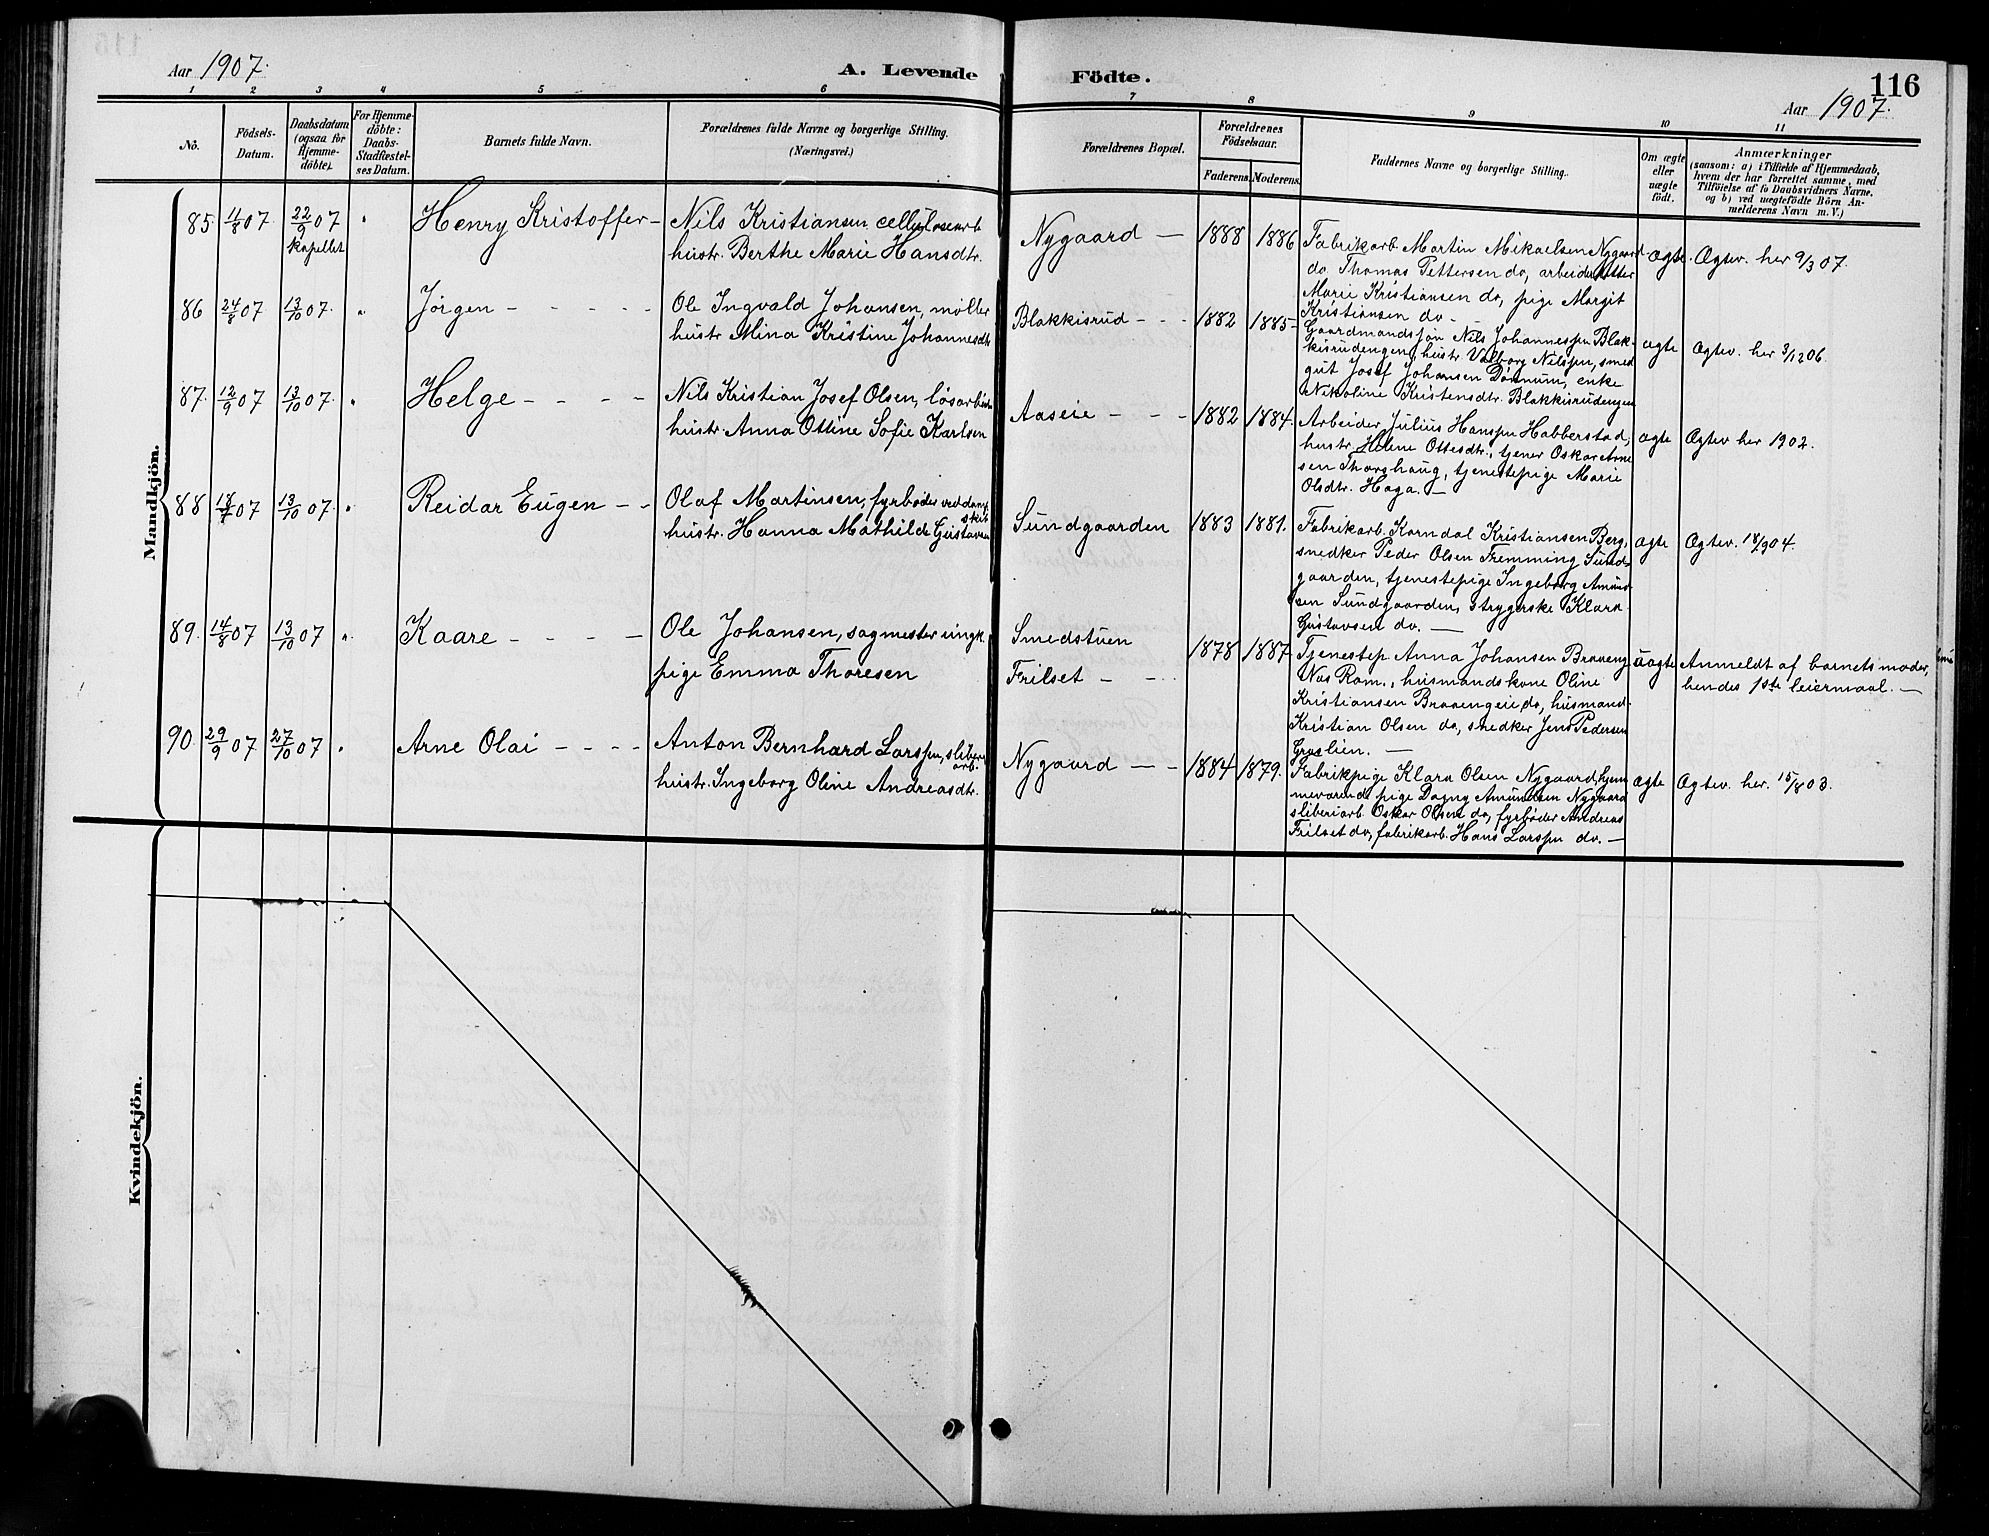 Aar 1907.
A. Levende Födte.
116
Aar 1907.
1 2 3 4 5 6 7 8 9 10 11
No.
Födsels-
Datum.
Daabsdatum
(ogsaa for
Hjemme-
döbte).
For Hjemme-
döbte:
Daabs-
Stadfæstel-
ses Datum.
Barnets fulde Navn.
Forældrenes fulde Navne og borgerlige Stilling.
(Næringsvei.)
Forældrenes Bopæl.
Forældrenes
Födselsaar.
Faderens. Moderens.
Faddernes Navne og borgerlige Stilling.
Om ægte
eller
uægte
födt.
Anmærkninger
(saasom: a) i Tilfælde af Hjemmedaab,
hvem der har forrettet samme, med
Tilföielse af to Daabsvidners Navne.
og b) ved uægtefödte Börn An-
melderens Navn m. V.)
Mandkjön.
85. 1/8 07 22/9 07 " Henry Kristoffer –
kapellet
Nils Kristiansen cellulosearb
hustr. Berthe Marie Hansdtr.
Nygaard – 1888 1886
Fabrikarb. Martin Mikaelsen Nygaard
do. Thomas Pettersen do, arbeiderdatter
Marie Kristiansen do, pige Margit
Kristiansen do –
ægte. Ægtev. her 9/3 07.
86 24/8 07 13/10 07. " Jørgen – – – –
Ole Ingvald Johansen, møller
hustr Mina Kristine Johannesdtr
Blakkisrud – – 1882 1885 –
Gaardmandssøn Nils Johannessen Blak-
kisrudengen, hustr Valborg Nilssen, smed
gut Josef Johansen Dønnum, enke
Nikoline Kristensdtr. Blakkisrudengen
ægte Ægtev. her 3/12 06.
87. 12/9 07 13/10 07. " Helge – – – –
Nils Kristian Josef Olsen, løsarbeider
hustr. Anna Otline Sofie Karlsen
Aaseie – – – 1882 1884.
Arbeider Julius Hanssen Habberstad,
hustr. Helene Ottesdtr., tjener Oskar Arne
sen Thorshaug, tjenestepige Marie
Olsdtr. Haga. –
ægte Ægtev her 1902.
88 07 13/10 07. " Reidar Eugen – –
Olaf Martinsen, fyrbøder ved damp
skib
hustr. Hanna Mathilde Gustavsen
Sundgaarden 1883 1881.
Fabrikarb. Karndal Kristiansen Berg,
snedker Peder Olsen Fremming Sund-
gaarden, tjenestepige Ingeborg Amund-
sen Sundgaarden, strygerske Klara
Gustavsen do. –
ægte Ægtev. 18/9 04.
89. 14/8 07 13/10 07 " Kaare – – – –
Ole Johansen, sagmester ungk.
pige Emma Thoresen
Smedstuen
Frilset – –
1878 1887
Tjenestep. Anna Johansen Braaeng
Nas Rom., husmandskone Oline
Kristiansen Braaengeie do, husmand
Kristian Olsen do, snedker Jens Pedersen
Graslien. –
uægte Anmeldt af barnets moder,
hendes 1ste leiermaal. –
90 29/9 07 27/10 07 " Arne Olai – – – –
Anton Bernhard Larssen, sliberi
arb.
hustr. Ingeborg Oline Andreasdtr.
Nygaard – – 1884 1879.
Fabrikpige Klara Olsen Nygaard, hjem
meværende pige Dagny Amundsen Nygaard
sliberiarb Oskar Olsen do, fyrbøder Andreas
Frilset do, fabrikarb. Hans Larssen do. –
ægte Ægtev. her. 15/8 03.
Kvindekjön.